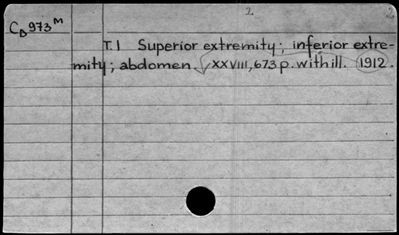 2
C_D 973 M
T.1 Superior extremity; inferior extre-
mity; abdomen. XXVIII, 673 p. with ill. 1912.